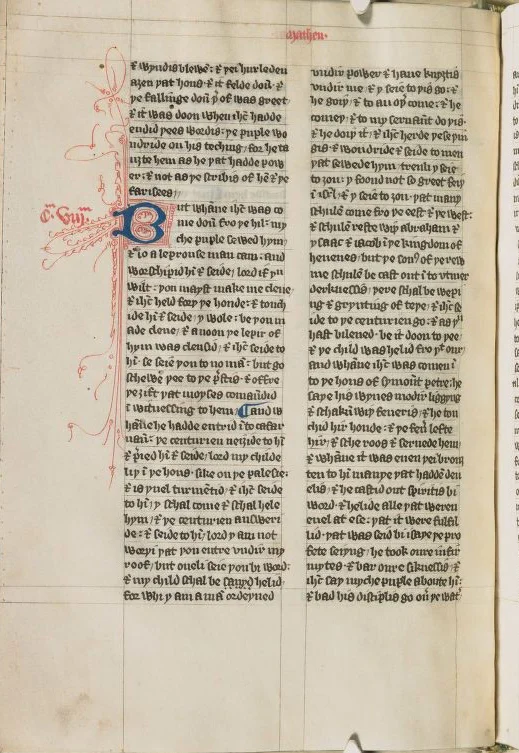 Matheu·
& wyndis blewe: & þei hurleden
aȝen þat hous: & it felde doū: &
þe fallinge doū þ'of was greet
& it was doon when ihc hadde
endid þees wordis: þe puple wo
undride on his teching: for he ta
uȝte hem as he þat hadde pow
er: & not as þe scribis of hē & þe
farisees//
C. viijm.
But whāne ihc was co
me doū fro þe hil: my
che puple sewed hym/
& lo a leprouse man cam: and
worschipid hī & seide/ lord if þu
wilt: þou mayst make me clene/
& ihc held forþ þe honde: & touch
ide hī & seide/ y wole: be þou m
ade clene/ & anoon þe lepir of
hym was clensid/ & ihc seide to
hī: se seie þou to no mā: but go
schewe þee to þe p'stis: & offre
þe ȝift þat moyses comaūdid
ī witnessing to hem/ And w
hāne he hadde entrid ī to cafar
naū: þe centurien neiȝide to hī
& p'ied hī & seide/ lord my childe
liþ ī þe hous: sike on þe palesie:
& is yuel turmētid/ & ihc seide
to hī/ y schal come & schal hele
hym/ & þe centurien answeri
de: & seide to hī/ lord y am not
worþi þat þou entre undir my
roof/ but oneli seie þou bi word:
& my child schal be saved helid/
for whi y am a mā ordeyned
undir power & haue knyȝtis
undir me/ & y seie to þis go: &
he goiþ/ & to an oþ' come: & he
comeþ/ & to my seruaūt do þis·
& he doiþ it/ & ihc herde þese þin
gis: & wondride & seide to men
þat sewede hym/ treuli y seie
to ȝou: y foond not so greet feiþ
ī isrl/ & y seie to ȝou· þat many
schulē come fro þe eest & þe west:
& schulē reste wiþ abraham &
ysaac & iacob ī þe kingdom of
heuenes/ but þe son' of þe rew
me schulē be cast out ī to utmer
derknesse/ þere schal be wepi
ng & grynting of teþe/ & ihc se
ide to þe centurien go: & as þu
hast bileued· be it doon to þee·
& þe child was helid fro þt our/
and whāne ihc was comen ī
to þe hous of symoūt petre: he
saye his wyues modir ligging
& schakū wiþ feueris/ & he tou
chid hir honde: & þe feū lefte
hir/ & sche roos & seruede hem/
& whāne it was euen þei brouȝ
ten to hī manye þat haddē deu
elis/ & he castid out spiritis bi
word· & helide alle þat weren
euel at ese: þat it were fulfil
lid· þat was seid bi isaye þe pro
fete seiyng/ he took oure infir
mytes· & bar oure siknessis/ &
ihc say myche puple aboute hī:
& bad his disciplis go ou' þe wat'